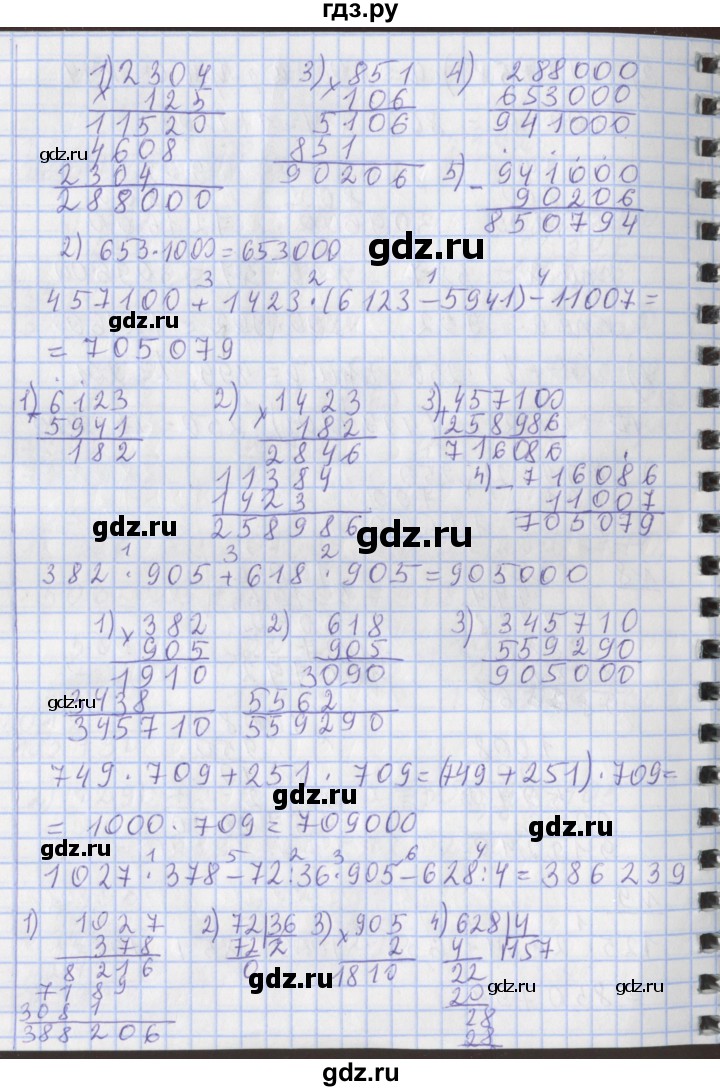 гдз.ру
1) 2304 3) 851 4) 288000
× 125 × 106 653000
11520 5106 941000
gdz.ru 4608 851
2304 90206 5) - 941000
288000 90206
850794
2) 653·1000=653000
gdz.ru
3 2 1 4
457100 + 1423·(6123-5941)-11007=
gdz.ru
= 705079
1) 6123 2) 1423 3) 457100
- 5941 × 182 + 258986
182 2846 716086
11384 4) - 716086
1423 11007
gdz.ru 258986 gdz.ru 705079
1 3 2
382·905+618·905=905000
1) 382 2) 618 3) 345710
× 905 905 559290
1910 3090 905000
gdz.ru 3438 5562
345710 559290
gdz.ru
749·709+251·709=(749+251)·709=
gdz.ru
= 1000·709=709000
gdz.ru
1 5 2 3 6 4
1027·378-72:36·905-628:4=386239
1) 1027 2) 72|36 3) 905 4) 628|4
378 72 2 × 2 4 157
8216 0 1810 22
7189 20
3081 28
388206 28
gdz.ru
gdz.ru
gdz.ru
gdz.ru